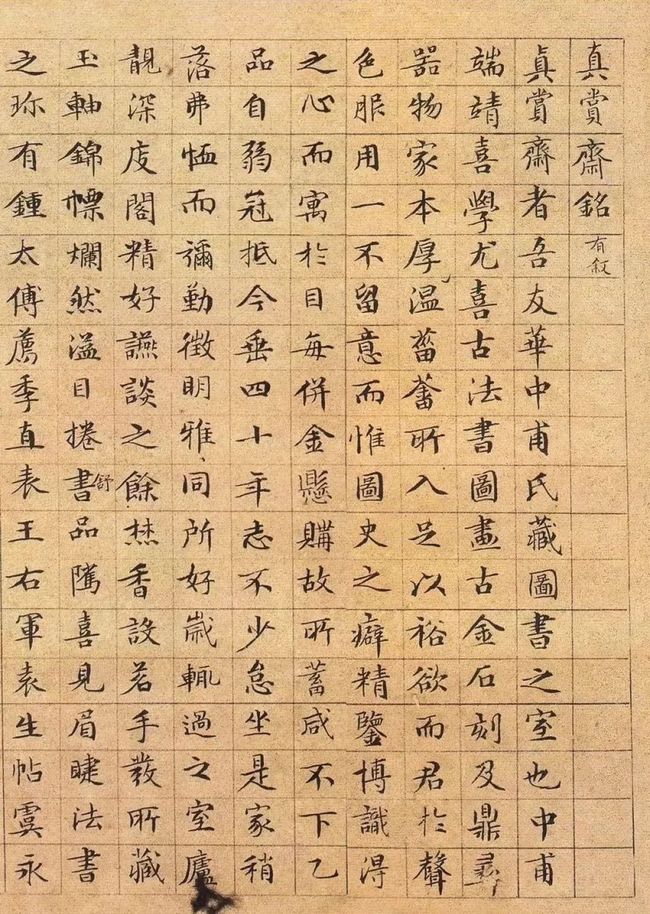 真賞齋銘 有叙
真賞齋者吾友華中甫氏藏圖書之室也中甫
端靖喜學尤喜古法書圖畫古金石刻及鼎彝
器物家本厚溫菑畬所入足以裕欲而君於聲
色服用一不留意而惟圖史之癖精鑒博識得
之心而寓於目每併金懸購故所蓄咸不下乙
品自弱冠抵今垂四十年志不少怠坐是家稍
落弗恤而彌勤徵明雅同所好歲輒過之室廬
靚深庋閣精好讌談之餘焚香設茗手發所藏
玉軸錦幖爛然溢目捲書舒品隲喜見眉睫法書
之珍有鍾太傅薦季直表王右軍袁生帖虞永